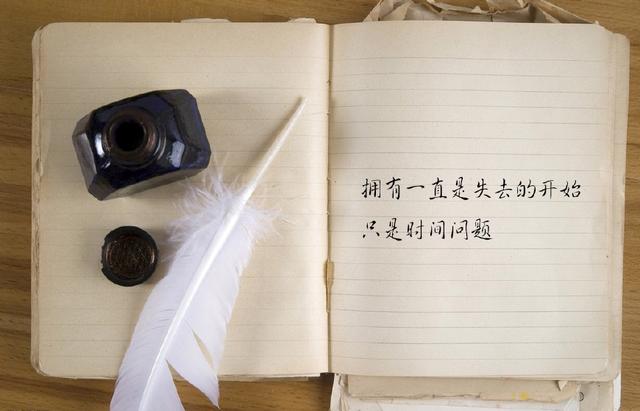 拥有一直是失去的开始
只是时间问题